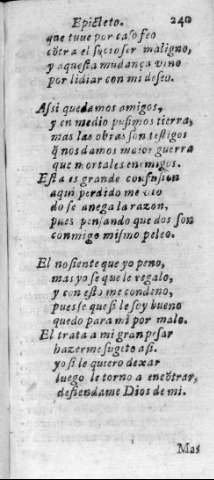 Epicteto. 240
que tuue por caso feo
cõtra el sucio ser maligno,
y aquesta mudança vino
por lidiar con mi deseo.
Assi quedamos amigos,
y en medio pusimos tierra,
mas las obras son testigos
q̃ nos damos maior guerra
que mortales enemigos.
Esta es grande confusion
aqui perdido me veo
do se anega la razon,
pues pensando que dos son
conmigo mismo peleo.
El no siente que yo peno,
mas yo se que le regalo,
y con esto me condeno,
pues se que si le soy bueno
quedo para mi por malo.
El trata a mi gran pesar
hazerme sugeto asi.
yo si le quiero dexar
luego le torno a encõtrar,
defiendame Dios de mi.
Mas